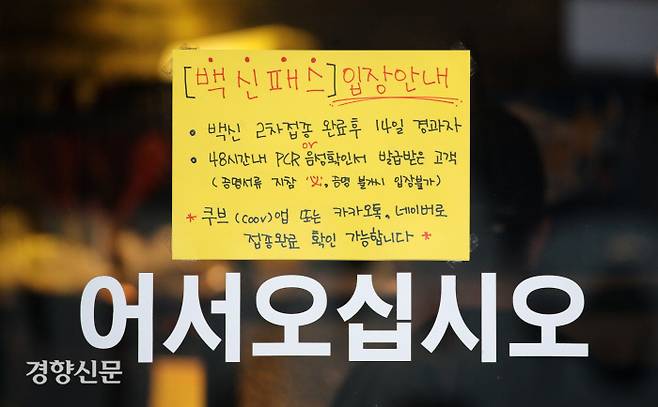 [백신패스] 입장안내
• 백신 2차접종 완료후 14일 경과자
or
• 48시간내 PCR 음성확인서 발급받은 고객
(증명서류 지참 必, 증명 불가시 입장불가)
* 쿠브(coov)앱 또는 카카오톡, 네이버로
접종완료 확인 가능합니다 *
어서오십시오
경향신문